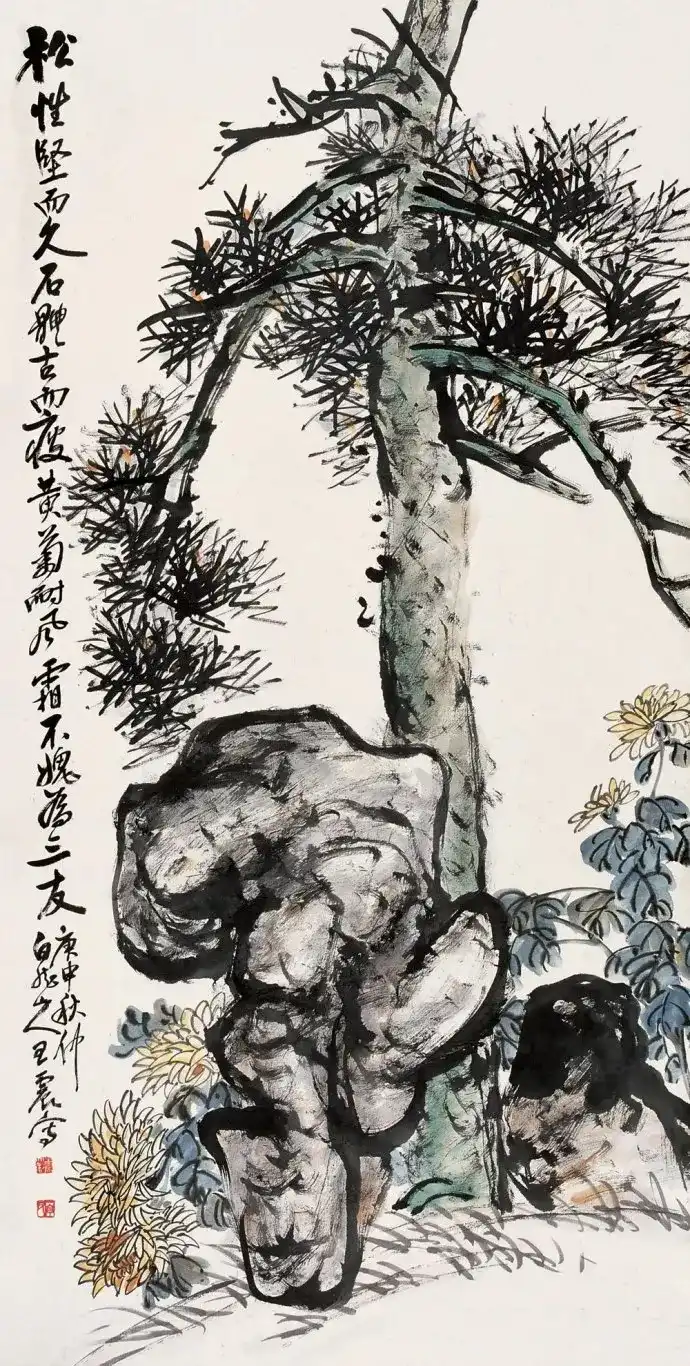 松性堅而久石體古而瘦黃菊耐風霜不媿為三友
庚申秋仲
白龍山人王震寫